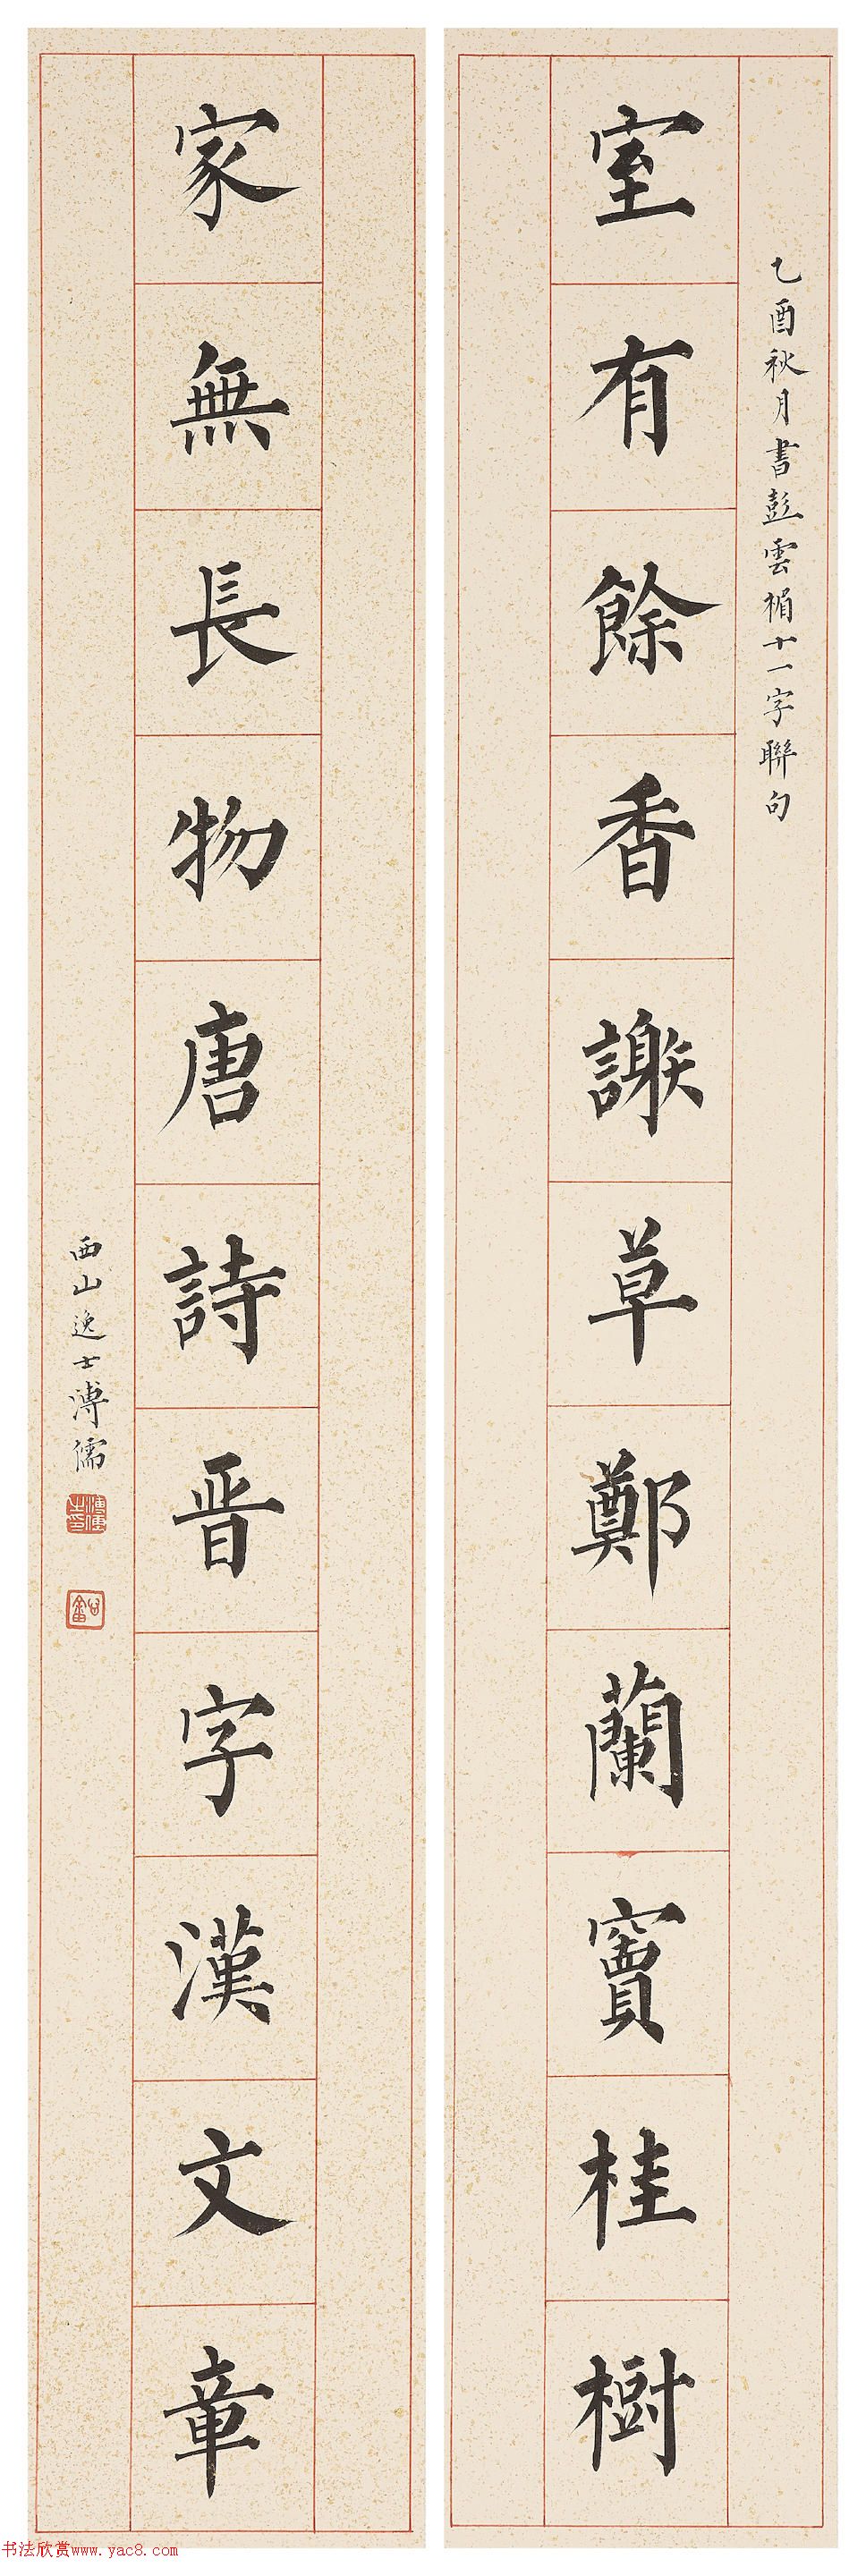 乙酉秋月書彭雲楣十一字聯句
室有餘香謝草鄭蘭竇桂樹
家無長物唐詩晉字漢文章
西山逸士溥儒
溥儒之印
书法欣赏www.yac8.com